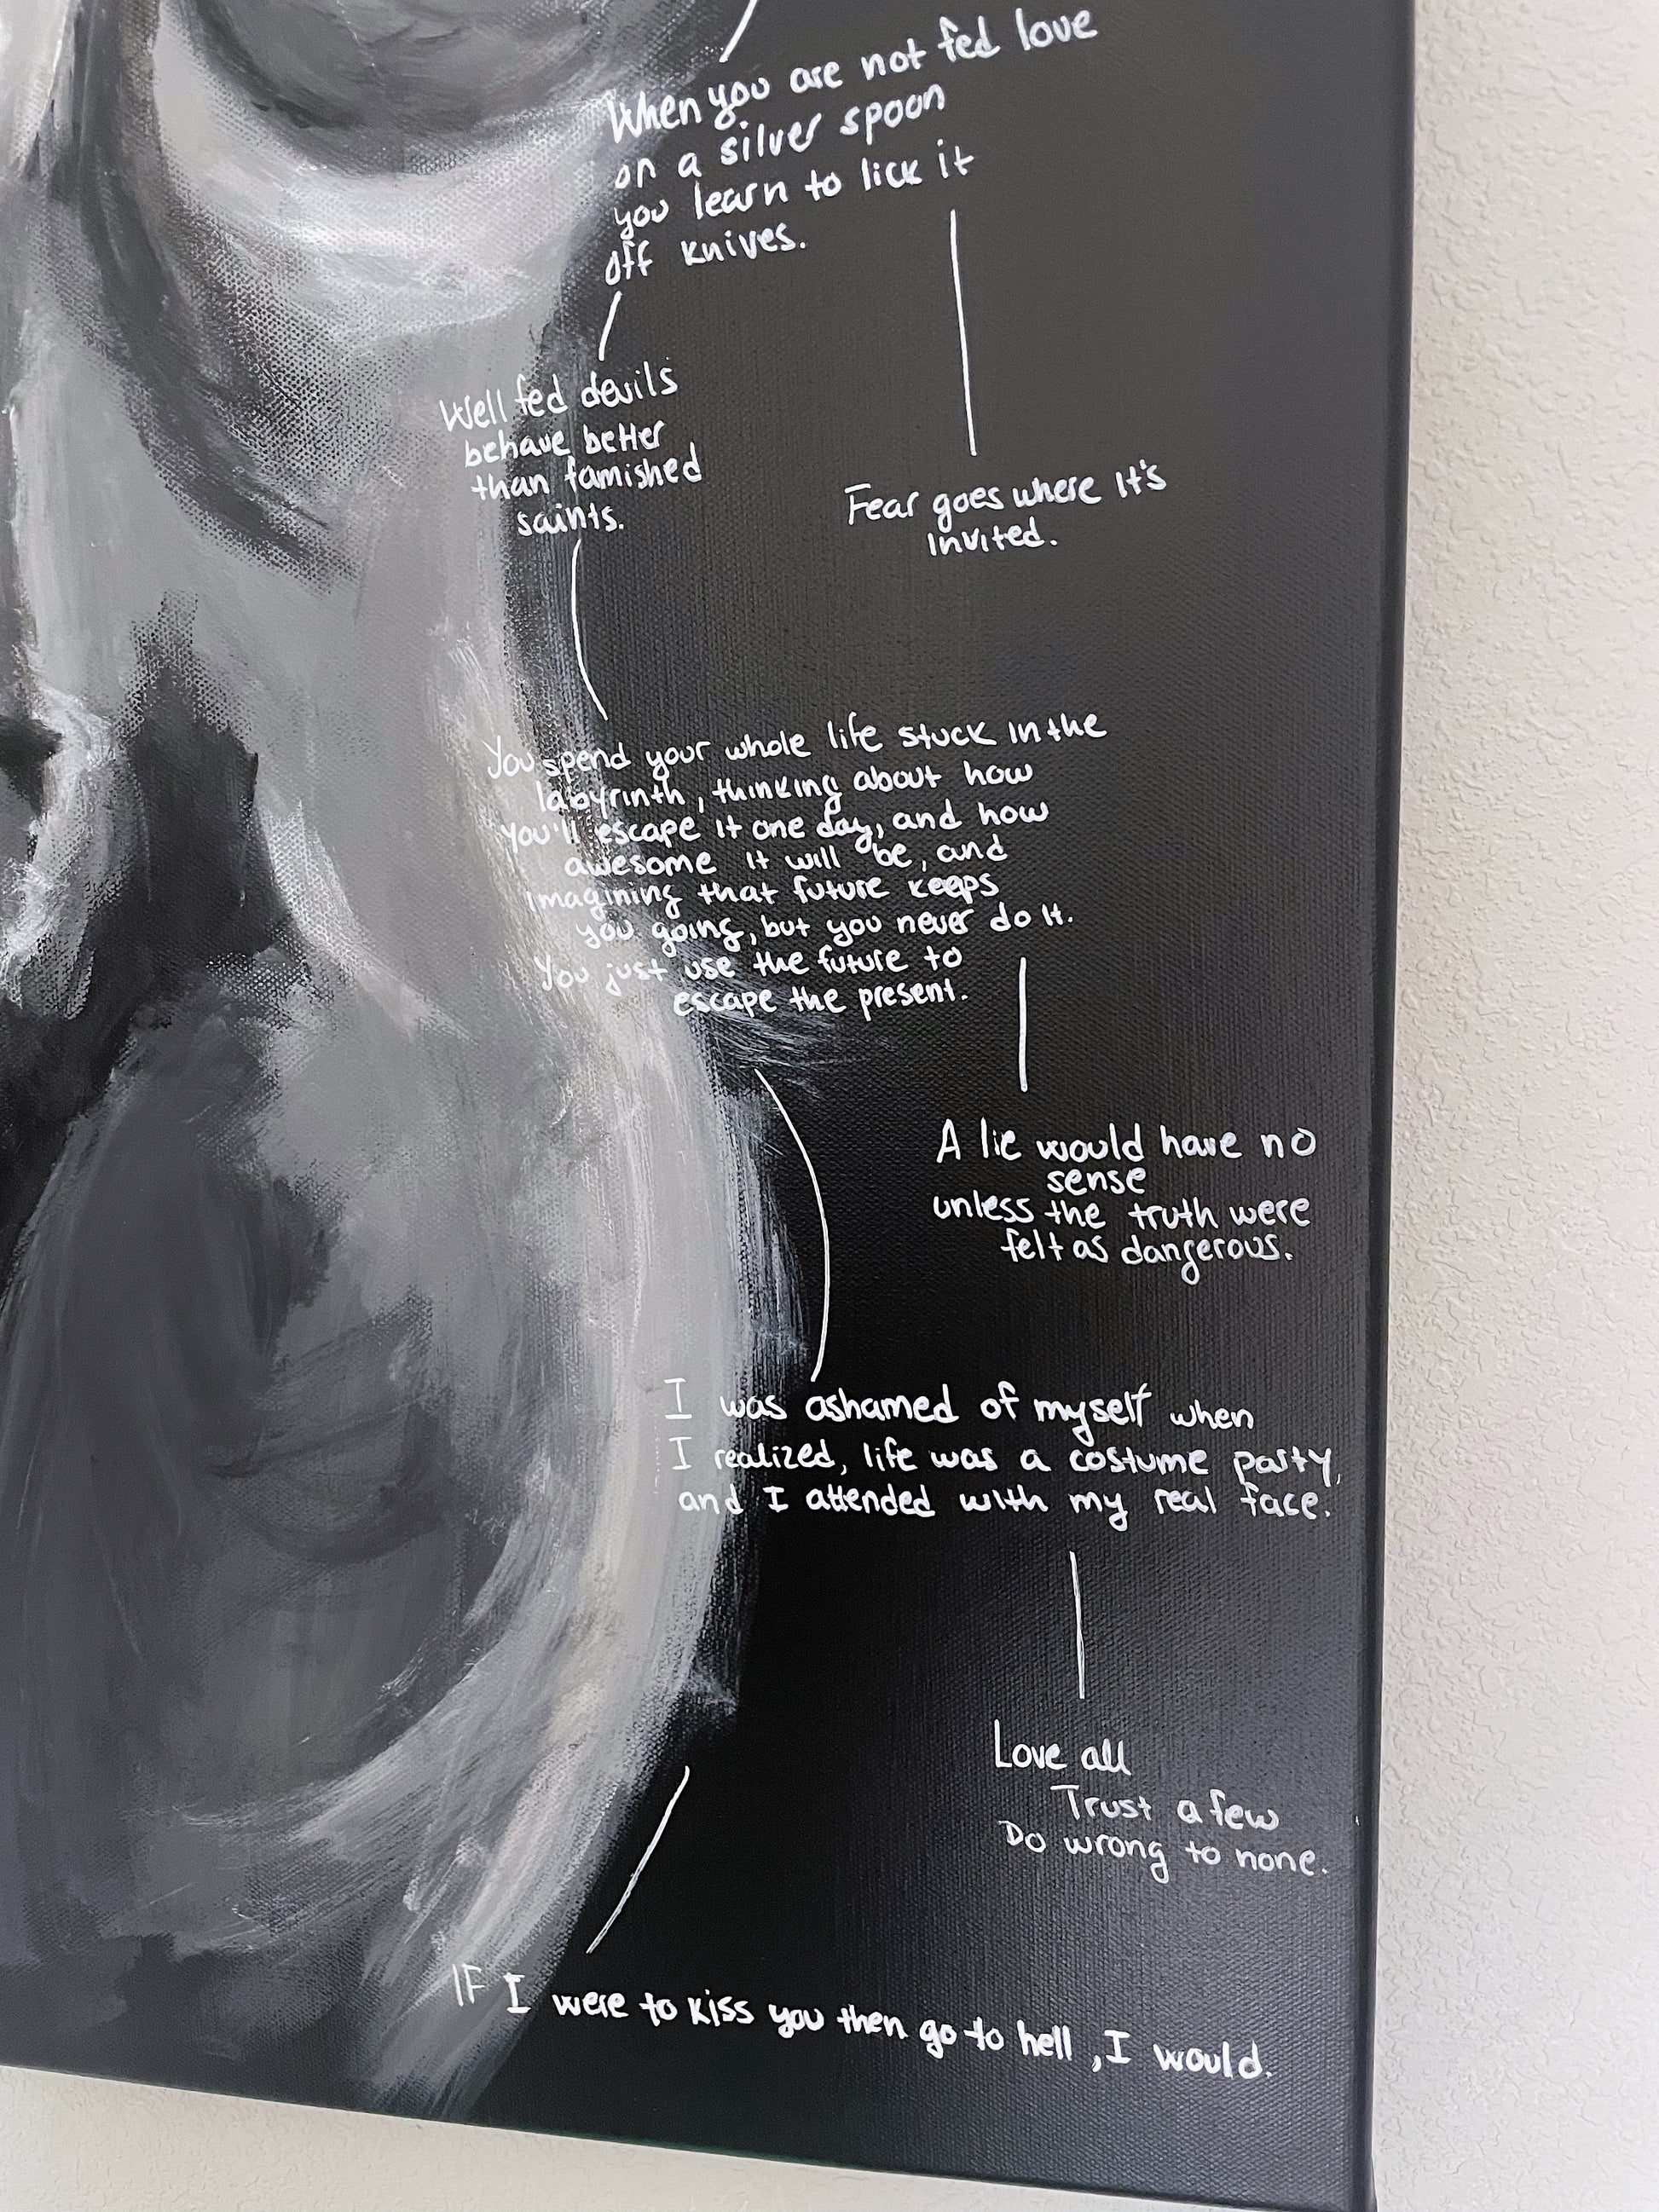 When you are not fed love
on a silver spoon
you learn to lick it
off knives.
Well fed devils
behave better
than famished
saints.
Fear goes where it's
invited.
You spend your whole life stuck in the
labyrinth, thinking about how
you'll escape it one day, and how
awesome it will be, and
imagining that future keeps
you going, but you never do it.
You just use the future to
escape the present.
A lie would have no
sense
unless the truth were
felt as dangerous.
I was ashamed of myself when
I realized, life was a costume party,
and I attended with my real face.
Love all
Trust a few
Do wrong to none.
IF I were to kiss you then go to hell, I would.